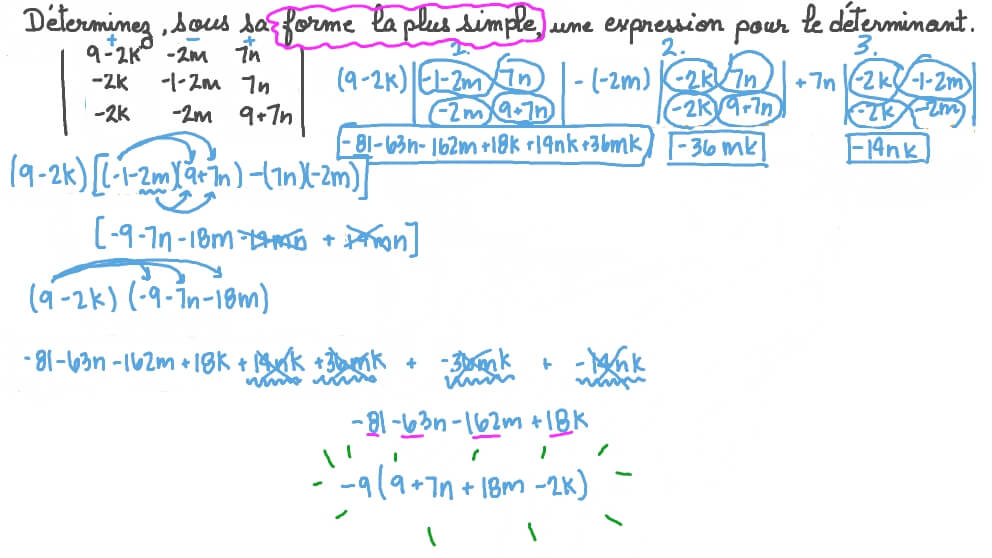 Déterminez, sous sa forme la plus simple, une expression pour le déterminant.
+ - +
| 9-2k -2m 7n |
| -2k -1-2m 7n |
| -2k -2m 9+7n |
1. 2. 3.
(9-2k) | -1-2m 7n | - (-2m) | -2k 7n | + 7n | -2k -1-2m |
| -2m 9+7n | | -2k 9+7n | | -2k -2m |
-81-63n-162m+18k+14nk+36mk -36mk -14nk
(9-2k)[(-1-2m)(9+7n)-(7n)(-2m)]
[-9-7n-18m-14mn + 14mn]
(9-2k)(-9-7n-18m)
-81-63n-162m+18k+14nk+36mk + -36mk + -14nk
-81-63n-162m+18k
-9(9+7n+18m-2k)